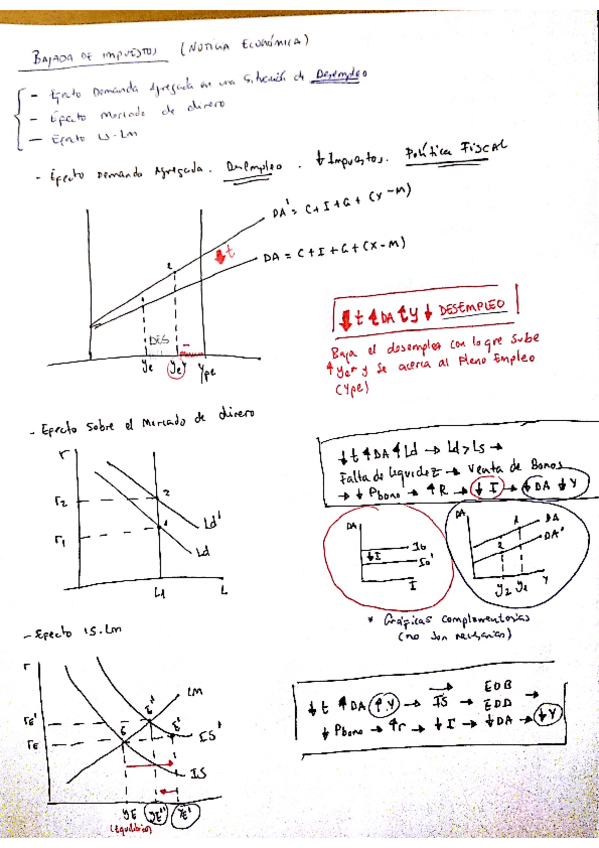 BAJADA DE IMPUESTOS (NOTICIA ECONÓMICA)
- Efecto Demanda Agregada en una Situación de Desempleo
- Efecto mercado de dinero
- Efecto IS-LM
- Efecto Demanda Agregada. Desempleo. ↓ Impuestos. Política FISCAL
DA' = C + I + G + (X - M)
↓ t
DA = C + I + G + (X - M)
2
DIS
ye ye' ype
↓ t ↑ DA ↑ y ↓ DESEMPLEO
Baja el desempleo con lo que sube
↑ ye y se acerca al Pleno Empleo
(ype)
- Efecto sobre el Mercado de dinero
r
r2
2
r1
1
Ld'
Ld
L1
L
↓ t ↑ DA ↑ Ld → Ld > Ls →
Falta de liquidez → Venta de Bonos
→ ↓ Pbono → ↑ R → ↓ I → ↓ DA ↓ Y
DA
↓ I
Io
Io'
I
DA
2
1
DA
DA'
y2 y1
Y
* Gráficas complementarias
(no son necesarias)
- Efecto IS-LM
r
LM
rE'
rE
E
E''
E'
IS'
IS
yE yE'' YE'
(Equilibrio)
↓ t ↑ DA ↑ Y → IS → EOB
EDD →
↓ Pbono → ↑ r → ↓ I → ↓ DA → ↓ Y